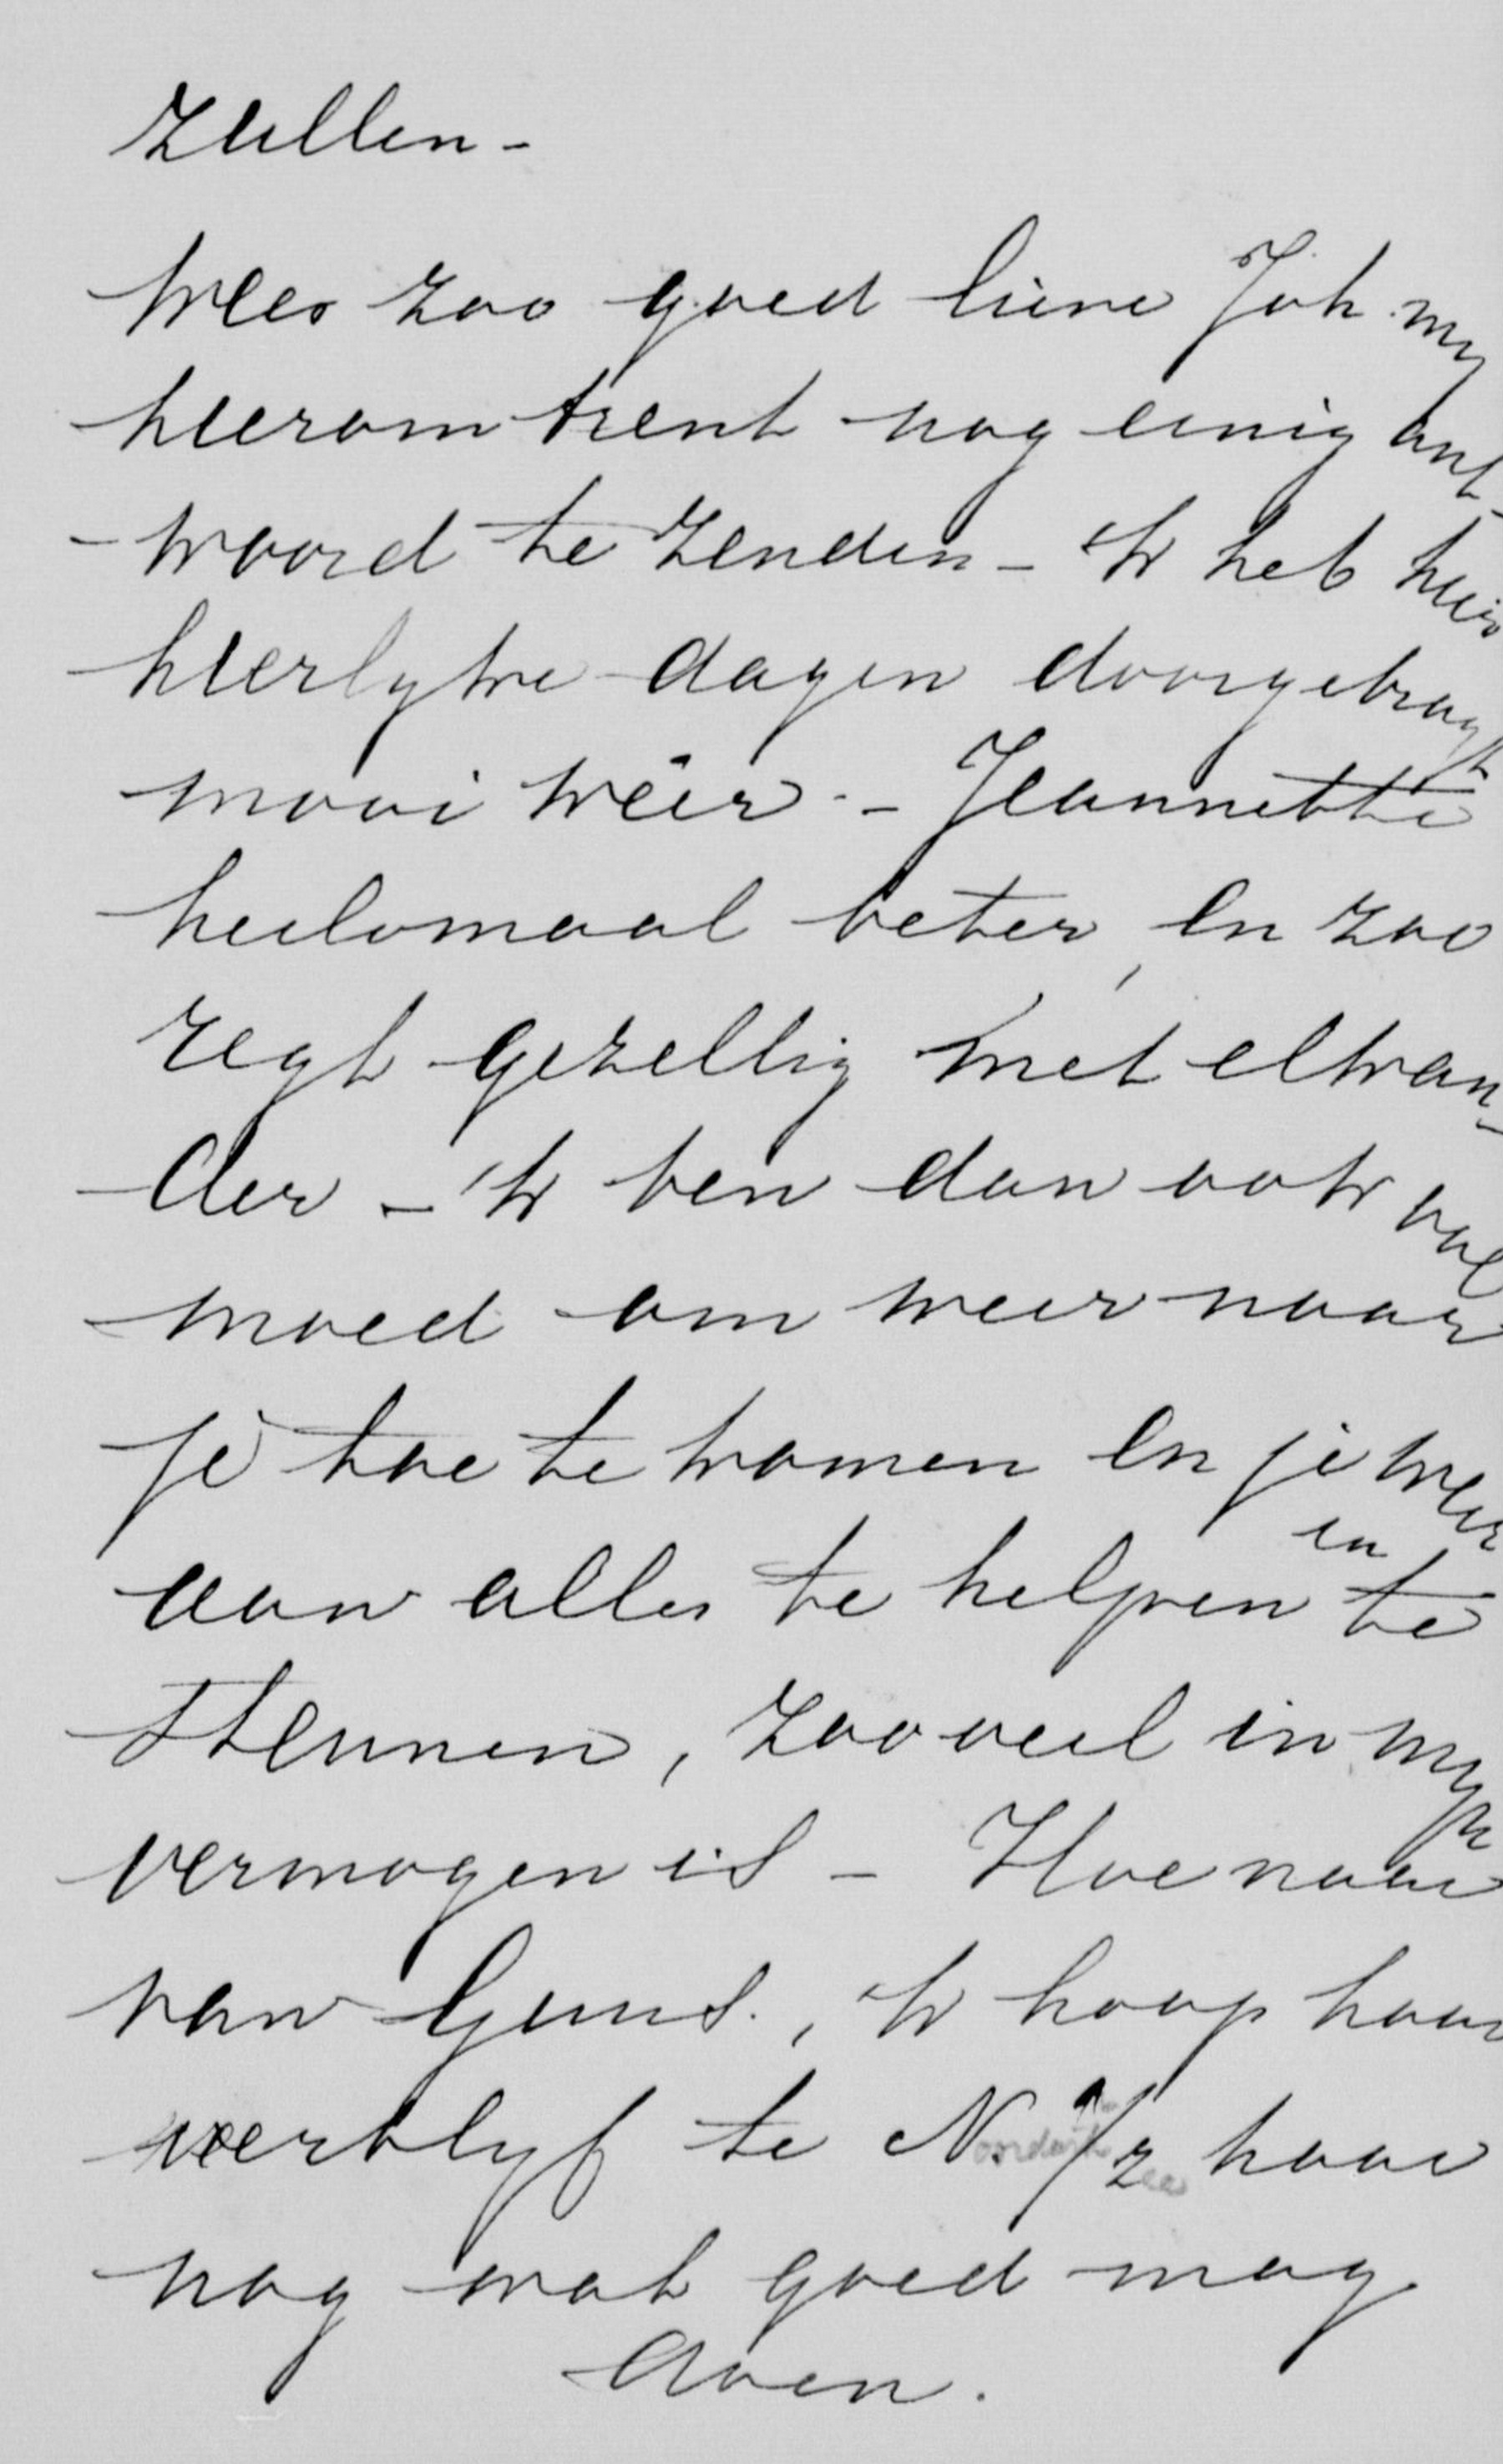 zullen -
Wees zoo goed lieve Joh. my
hieromtrent nog eenig ant-
- woord te zenden - Ik heb hier
heerlyke dagen doorgebragt
mooi weer - Jeannette
heelemaal beter, en zoo
regt gezellig met elkan-
- der - Ik ben dan ook vol
moed om weer naar
je toe te komen en je weer
aan alles te helpen en te
steunen, zooveel in myn
vermogen is - Hoe naar
van Guus., ik hoop haar
verblyf te N. a/z haar
nog wat goed mag
doen.